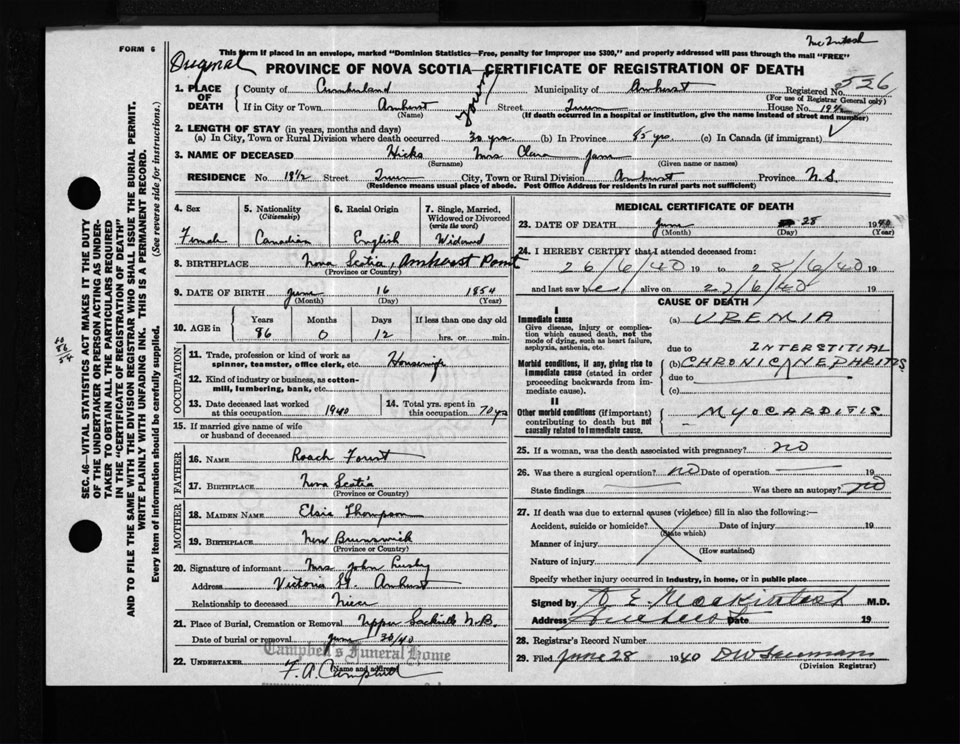 McIntosh
FORM 6
This form if placed in an envelope, marked "Dominion Statistics—Free, penalty for improper use $300," and properly addressed will pass through the mail "FREE"
Original
PROVINCE OF NOVA SCOTIA—CERTIFICATE OF REGISTRATION OF DEATH
1. PLACE OF DEATH
County of Cumberland Municipality of Amherst Registered No. 336
(For use of Registrar General only)
If in City or Town Amherst Street House No. 18½
(Name) (If death occurred in a hospital or institution, give the name instead of street and number)
2. LENGTH OF STAY (in years, months and days)
(a) In City, Town or Rural Division where death occurred 30 yrs. (b) In Province 85 yrs (c) In Canada (if immigrant)
3. NAME OF DECEASED Hicks Mrs Clara Jane
(Surname) (Given name or names)
RESIDENCE No. 18½ Street City, Town or Rural Division Amherst Province N.S.
(Residence means usual place of abode. Post Office Address for residents in rural parts not sufficient)
4. Sex
Female
5. Nationality (Citizenship)
Canadian
6. Racial Origin
English
7. Single, Married, Widowed or Divorced (write the word)
Widowed
8. BIRTHPLACE Nova Scotia, Amherst Point
(Province or Country)
9. DATE OF BIRTH June 16 1854
(Month) (Day) (Year)
10. AGE in
Years Months Days If less than one day old
86 0 12 hrs. or min.
OCCUPATION
11. Trade, profession or kind of work as spinner, teamster, office clerk, etc. Housewife
12. Kind of industry or business, as cotton-mill, lumbering, bank, etc.
13. Date deceased last worked at this occupation 1940
14. Total yrs. spent in this occupation 70 yrs
15. If married give name of wife or husband of deceased
FATHER
16. NAME Roach Forrest
17. BIRTHPLACE Nova Scotia
(Province or Country)
MOTHER
18. MAIDEN NAME Elsie Thompson
19. BIRTHPLACE New Brunswick
(Province or Country)
20. Signature of informant Mrs John Lusby
Address Victoria St. Amherst
Relationship to deceased Niece
21. Place of Burial, Cremation or Removal Upper Sackville N.B.
Date of burial or removal June 30/40
Campbell's Funeral Home
22. UNDERTAKER F. A. Campbell
(Name and address)
MEDICAL CERTIFICATE OF DEATH
23. DATE OF DEATH June 28 1940
(Month) (Day) (Year)
24. I HEREBY CERTIFY that I attended deceased from:
26/6/40 19 to 28/6/40 19
and last saw h er alive on 27/6/40 19
CAUSE OF DEATH
I
Immediate cause
Give disease, injury or complication which caused death, not the mode of dying, such as heart failure, asphyxia, asthenia, etc.
(a) UREMIA
due to INTERSTITIAL
Morbid conditions, if any, giving rise to immediate cause (stated in order proceeding backwards from immediate cause).
(b) CHRONIC NEPHRITIS
due to
(c)
II
Other morbid conditions (if important) contributing to death but not causally related to immediate cause.
MYOCARDITIS.
25. If a woman, was the death associated with pregnancy? no
26. Was there a surgical operation? no Date of operation 19
State findings Was there an autopsy? no
27. If death was due to external causes (violence) fill in also the following:—
Accident, suicide or homicide? Date of injury 19
(State which)
Manner of injury
(How sustained)
Nature of injury
Specify whether injury occurred in industry, in home, or in public place
Signed by D. E. Mackintosh M.D.
Address Amherst Date 19
28. Registrar's Record Number
29. Filed June 28 1940
(Division Registrar)
SEC. 46—VITAL STATISTICS ACT MAKES IT THE DUTY
OF THE UNDERTAKER OR PERSON ACTING AS UNDER-
TAKER TO OBTAIN ALL THE PARTICULARS REQUIRED
IN THE "CERTIFICATE OF REGISTRATION OF DEATH"
AND TO FILE THE SAME WITH THE DIVISION REGISTRAR WHO SHALL ISSUE THE BURIAL PERMIT.
WRITE PLAINLY WITH UNFADING INK. THIS IS A PERMANENT RECORD.
Every item of information should be carefully supplied. (See reverse side for instructions.)
40
86
54